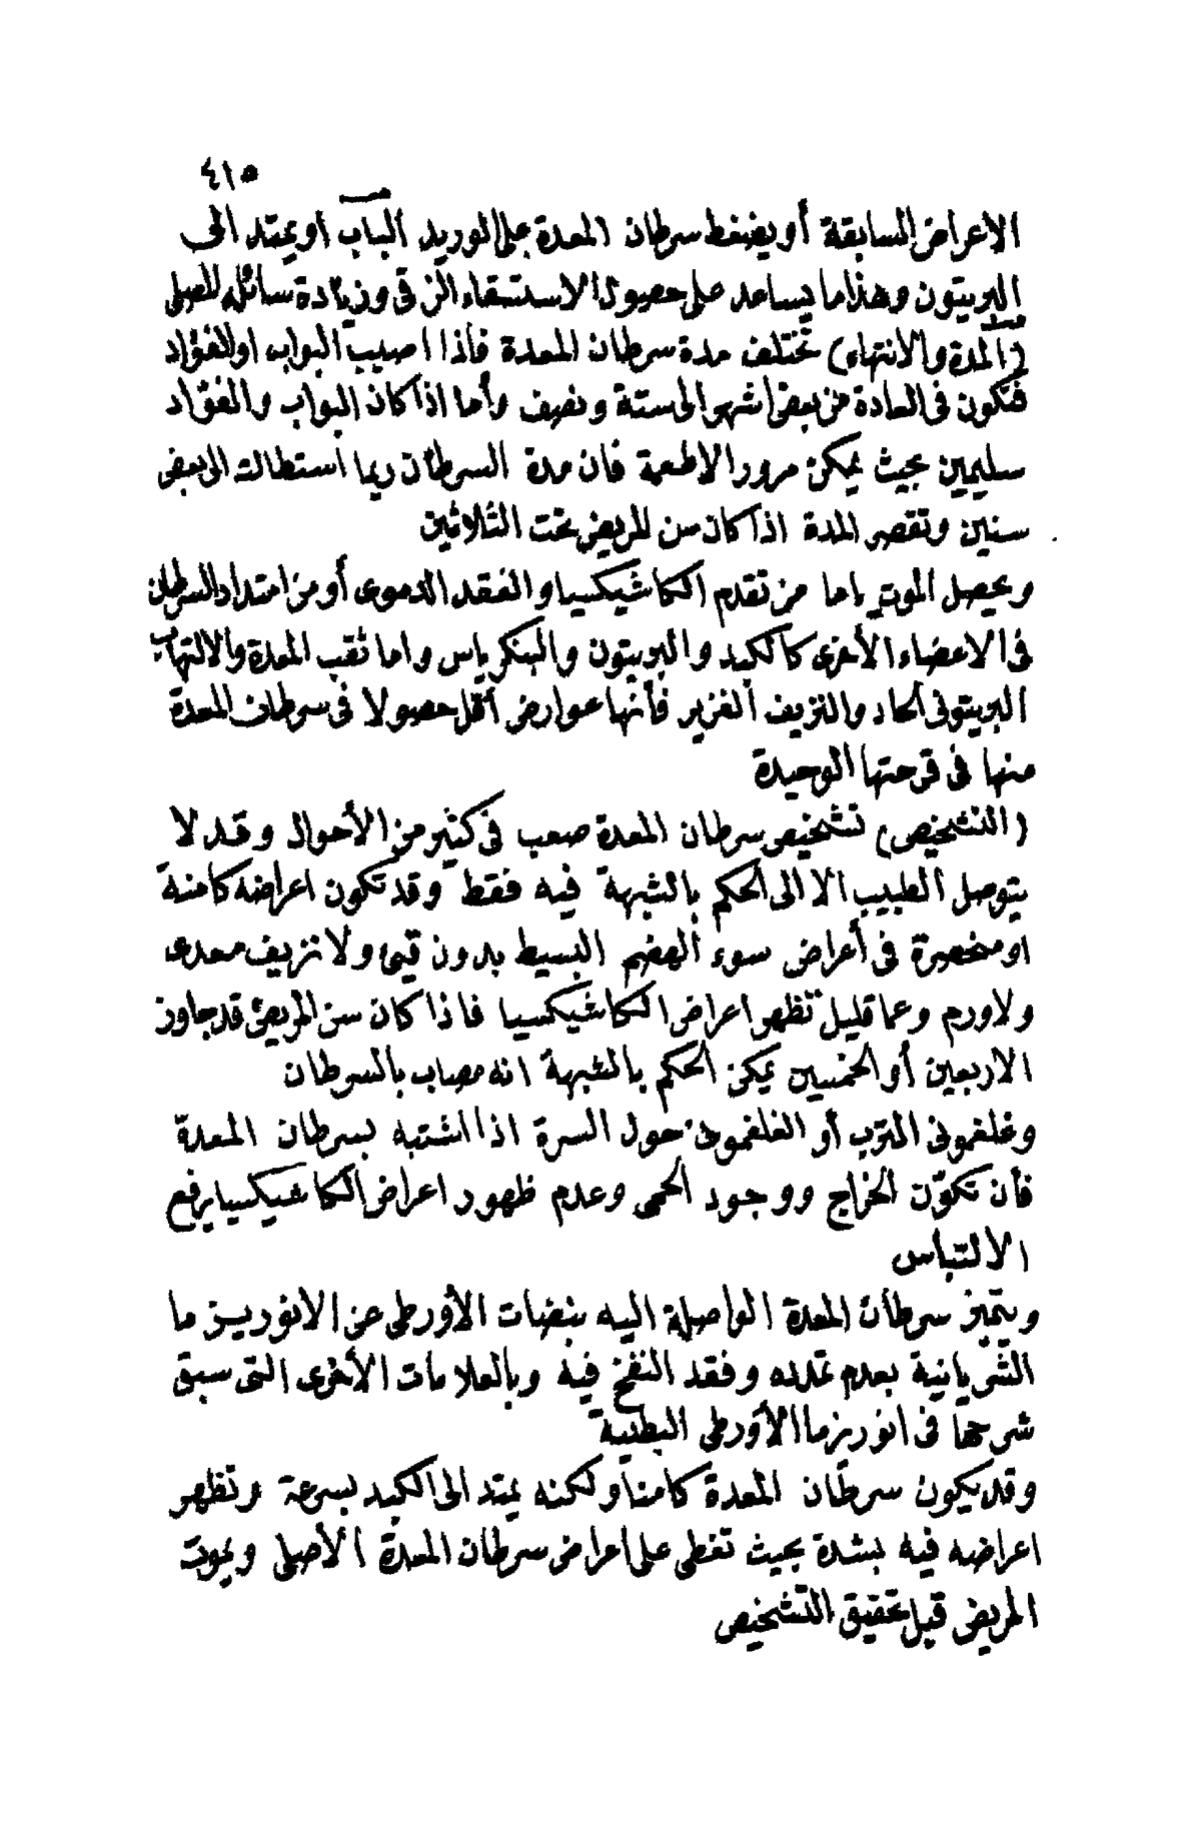 ٤١٥
الاعراض السابقة أو يضغط سرطان المعدة على الوريد الباب أو يمتد الى
البريتون وهذا ما يساعد على حصول الاستسقاء الزقى وزيادة سائله المصلى
(المدة والانتهاء) تختلف مدة سرطان المعدة فأذا اصيب البواب او الفؤاد
فتكون فى العادة من بعض اشهر الى ستة ونصف وأما اذا كان البواب والفؤاد
سليمين بحيث يمكن مرور الاطعمة فان مدة السرطان ربما استطالت الى بعض
سنين وتقصر المدة اذا كان سن المريض تحت الثلاثين
ويحصل الموت اما من تقدم الكاشيكسيا والفقد الدموى أو من امتداد السرطان
فى الاعضاء الأخرى كالكبد والبريتون والبنكرياس واما ثقب المعدة والالتهاب
البريتونى الحاد والنزيف الغزير فأنها عوارض أقل حصولا فى سرطان المعدة
منها فى قرحتها الوحيدة
(التشخيص) تشخيص سرطان المعدة صعب فى كثير من الأحوال وقد لا
يتوصل الطبيب الا الى الحكم بالشبهة فيه فقط وقد تكون اعراضه كامنة
او منحصرة فى أعراض سوء الهضم البسيط بدون قيئ ولا نزيف معدى
ولا ورم وعما قليل تظهر اعراض الكاشيكسيا فاذا كان سن المريض قد جاوز
الاربعين أو الخمسين يمكن الحكم بالشبهة انه مصاب بالسرطان
وغلغمونى الثرب أو الغلغمونى حول السرة اذا اشتبه بسرطان المعدة
فأن تكوّن الخراج ووجود الحمى وعدم ظهور اعراض الكاشيكسيا يرفع
الالتباس
ويتميز سرطان المعدة الواصلة اليه نبضات الأورطى عن الانوريزما
الشريانية بعدم تمدده وفقد النفخ فيه وبالعلامات الأخرى التى سبق
شرحها فى انوريزما الأورطى البطنية
وقد يكون سرطان المعدة كامنا ولكنه يمتد الى الكبد بسرعة وتظهر
اعراضه فيه بشدة بحيث تغطى على اعراض سرطان المعدة الأصلى ويموت
المريض قبل تحقيق التشخيص